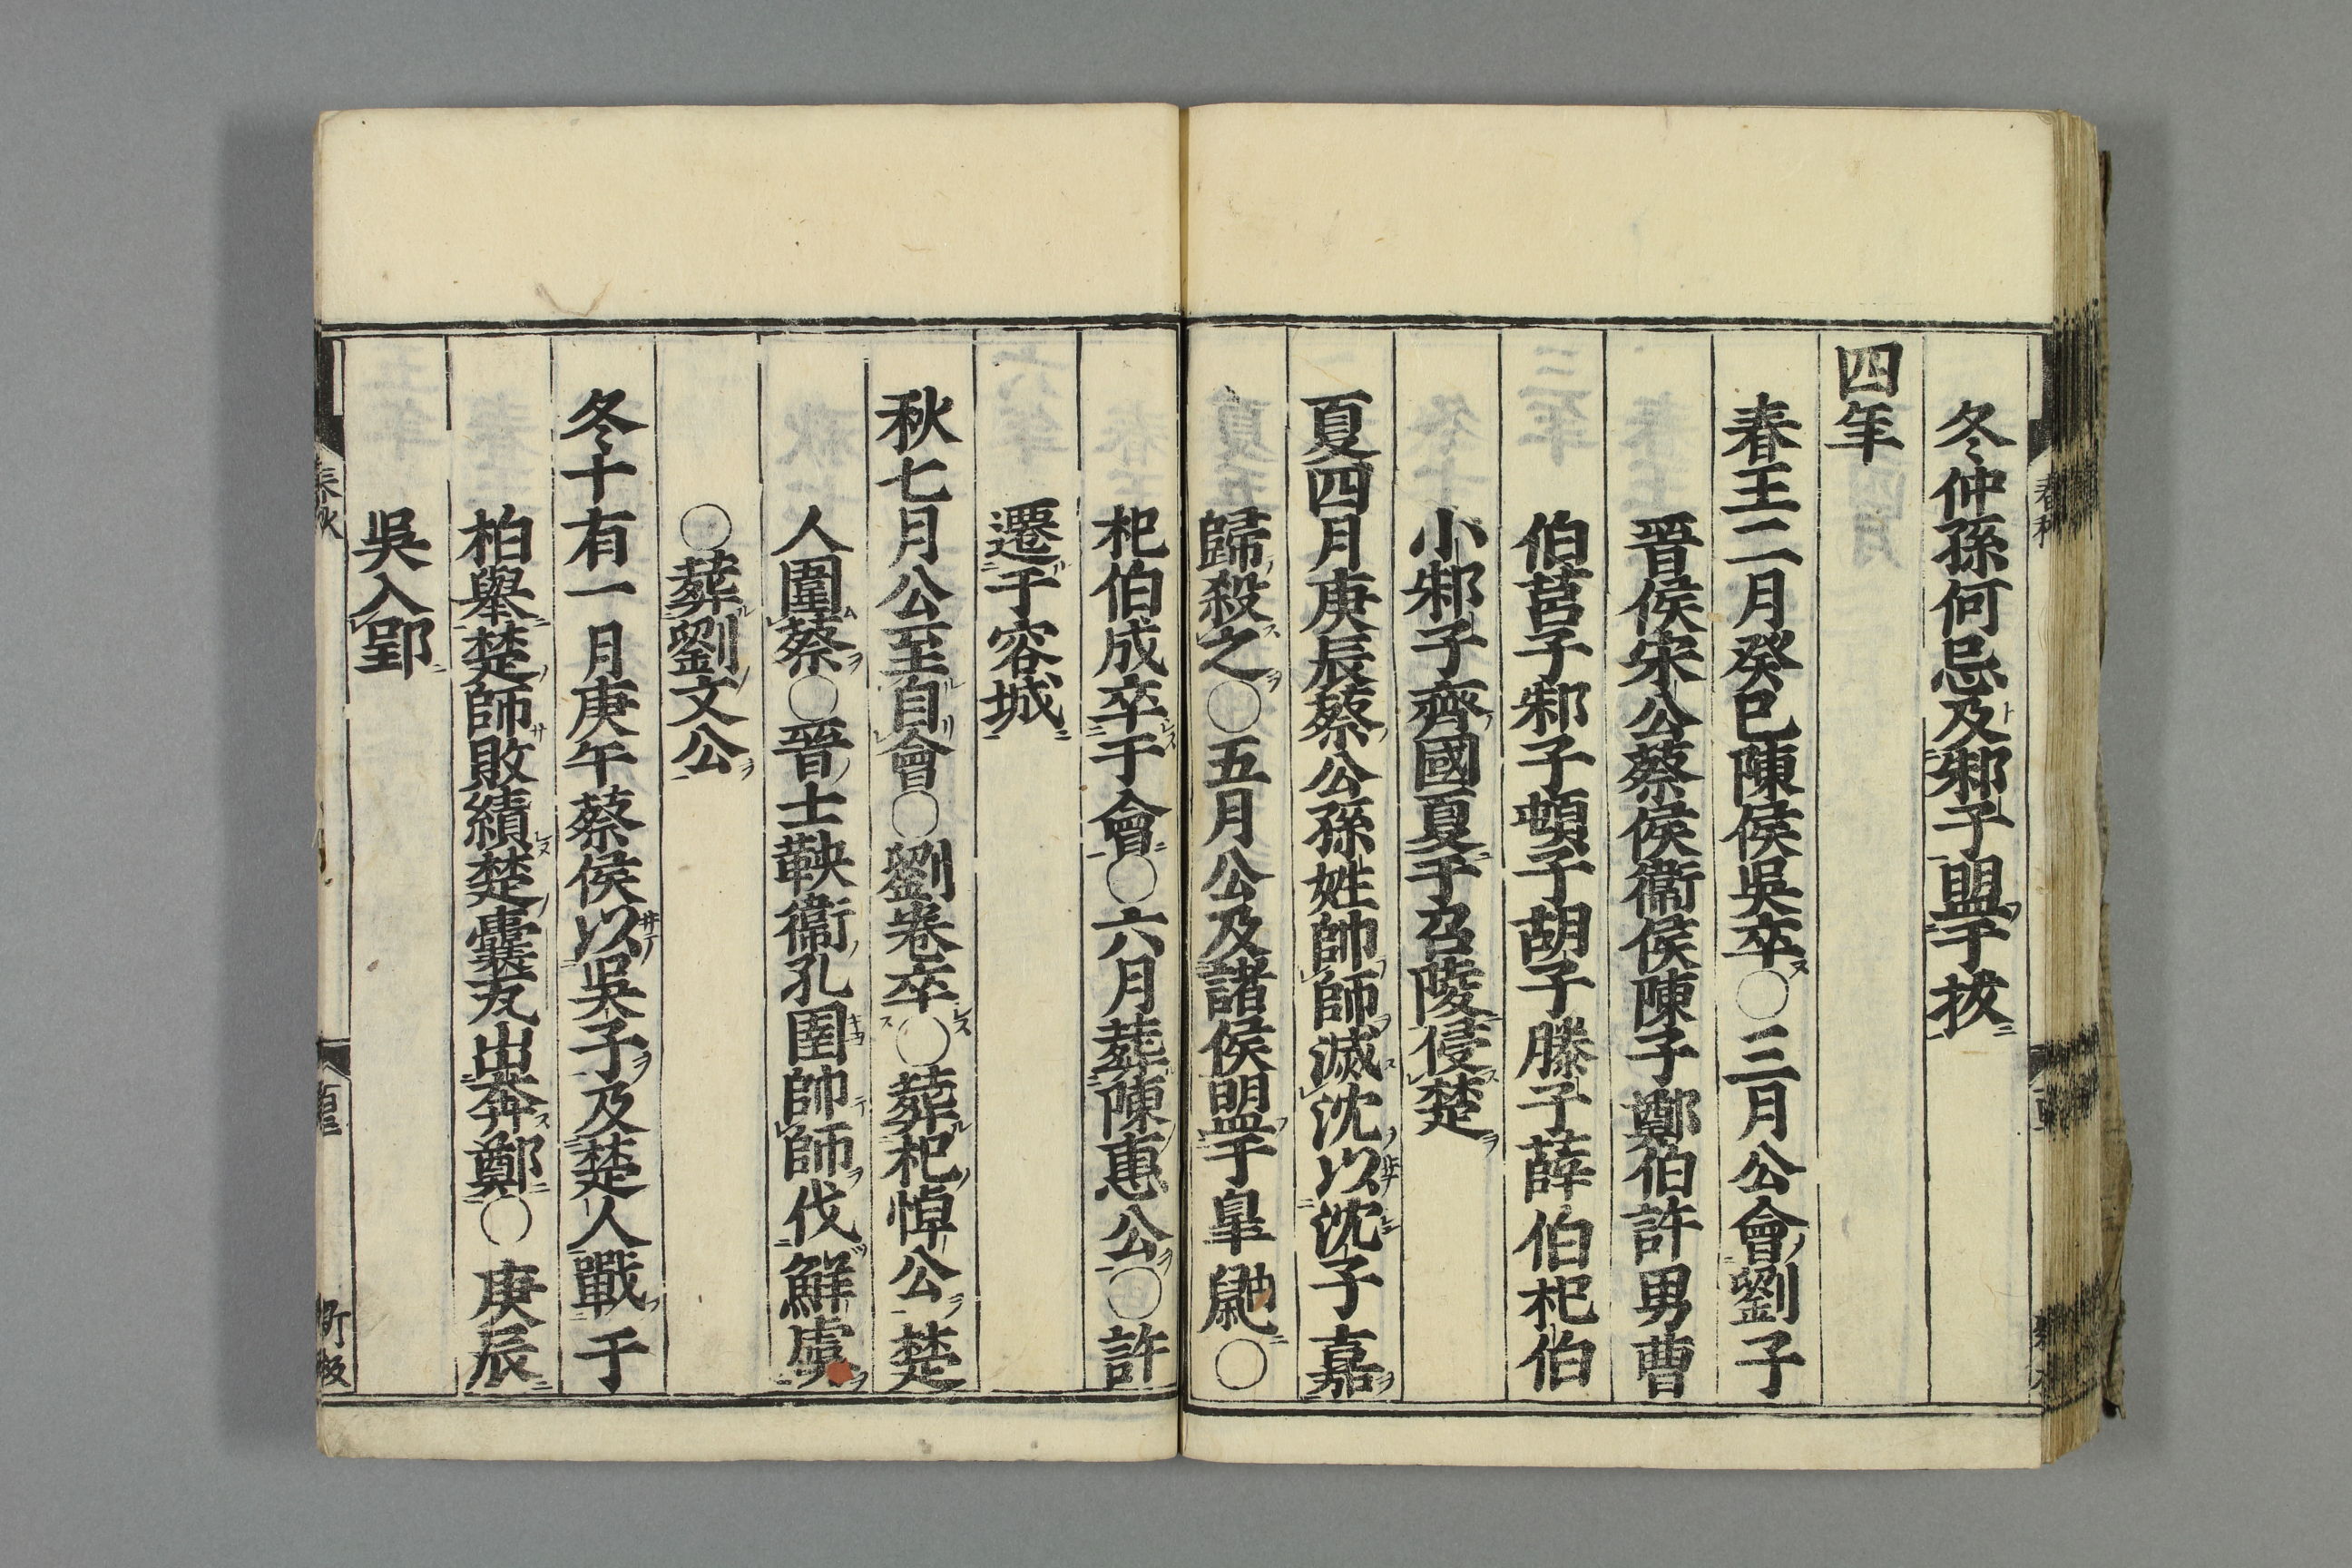 冬仲孫何忌及邾子盟于拔
四年
春王二月癸巳陳侯吳卒○三月公會劉子
晉侯宋公蔡侯衞侯陳子鄭伯許男曹
伯莒子邾子頓子胡子滕子薛伯杞伯
小邾子齊國夏于召陵侵楚
夏四月庚辰蔡公孫姓帥師滅沈以沈子嘉
歸殺之○五月公及諸侯盟于皐鼬○
杞伯成卒于會○六月葬陳惠公○許
遷于容城
秋七月公至自會○劉卷卒○葬杞悼公楚
人圍蔡○晉士鞅衞孔圉帥師伐鮮虞
○葬劉文公
冬十有一月庚午蔡侯以吳子及楚人戰于
柏擧楚師敗績楚囊瓦出奔鄭○庚辰
吳入郢
春秋